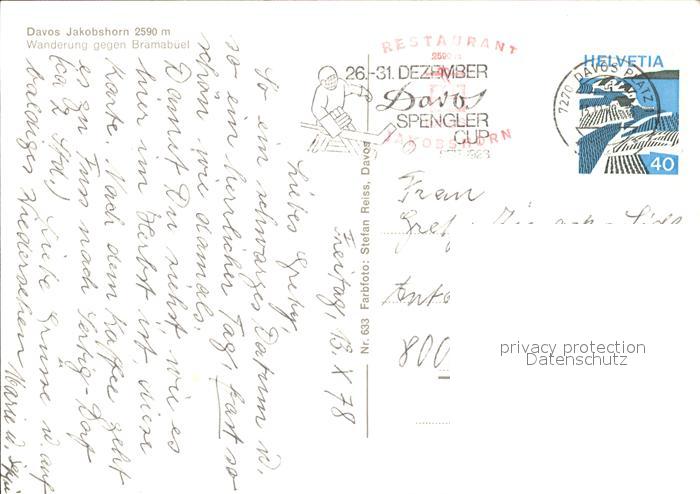 Davos Jakobshorn 2590 m
Wanderung gegen Bramabuel
RESTAURANT
2590 m
JAKOBSHORN
26.-31. DEZEMBER
Davos
SPENGLER
CUP
7270 DAVOS PLATZ
HELVETIA
40
Nr. 633 Farbfoto: Stefan Reiss, Davos
Freitag, 13. X 78
Liebes Gretly,
So ein schwarzes Datum u.
so ein herrlicher Tag, fast so
schön wie damals.
Damit Du siehst, wie es
hier im Herbst ist, diese
Karte. Nach dem Kaffee geht
es zu Fuss nach Sertig-Dorf
(ca 2 Std.) Liebe Grüsse u. auf
baldiges Wiedersehen Marie u.
Frau
Gret
800
privacy protection
Datenschutz